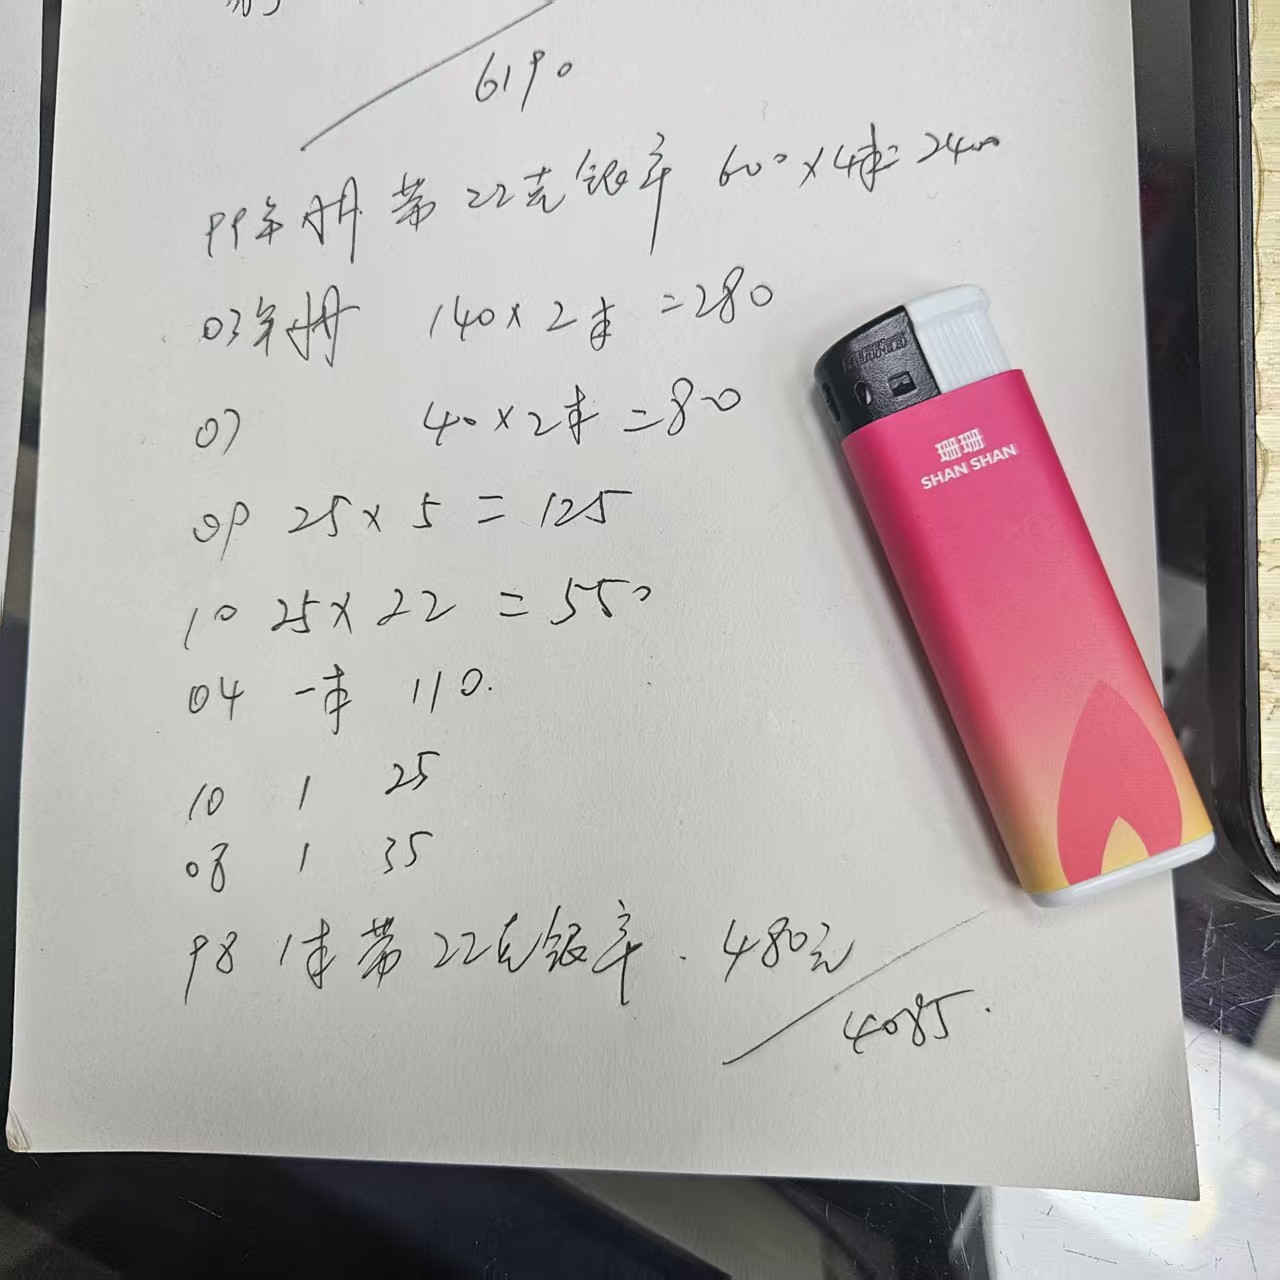 6190
99年册 带22克银章 600×4本=2400
03年册 140×2本=280
07 40×2本=80
09 25×5=125
10 25×22=550
04 一本 110.
10 1 25
08 1 35
98 1本带22克银章. 480元
4085.
珊珊
SHAN SHAN